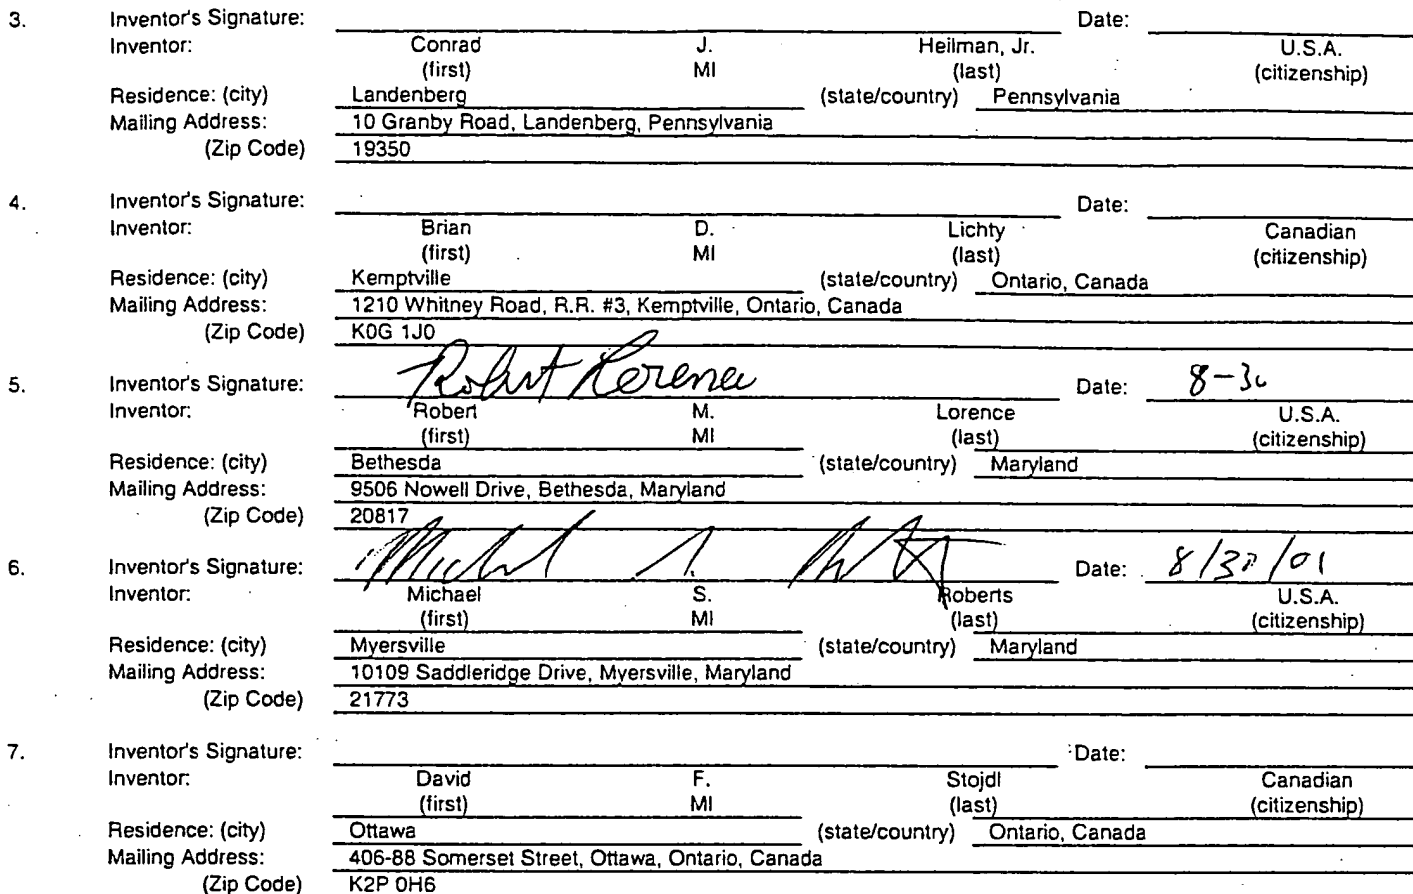 3. Inventor's Signature: Date:
Inventor: Conrad J. Heilman, Jr. U.S.A.
(first) MI (last) (citizenship)
Residence: (city) Landenberg (state/country) Pennsylvania
Mailing Address: 10 Granby Road, Landenberg, Pennsylvania
(Zip Code) 19350
4. Inventor's Signature: Date:
Inventor: Brian D. Lichty Canadian
(first) MI (last) (citizenship)
Residence: (city) Kemptville (state/country) Ontario, Canada
Mailing Address: 1210 Whitney Road, R.R. #3, Kemptville, Ontario, Canada
(Zip Code) K0G 1J0
5. Inventor's Signature: Robert Lorence Date: 8-30
Inventor: Robert M. Lorence U.S.A.
(first) MI (last) (citizenship)
Residence: (city) Bethesda (state/country) Maryland
Mailing Address: 9506 Nowell Drive, Bethesda, Maryland
(Zip Code) 20817
6. Inventor's Signature: Michael S. Date: 8/30/01
Inventor: Michael S. Roberts U.S.A.
(first) MI (last) (citizenship)
Residence: (city) Myersville (state/country) Maryland
Mailing Address: 10109 Saddleridge Drive, Myersville, Maryland
(Zip Code) 21773
7. Inventor's Signature: Date:
Inventor: David F. Stojdl Canadian
(first) MI (last) (citizenship)
Residence: (city) Ottawa (state/country) Ontario, Canada
Mailing Address: 406-88 Somerset Street, Ottawa, Ontario, Canada
(Zip Code) K2P 0H6